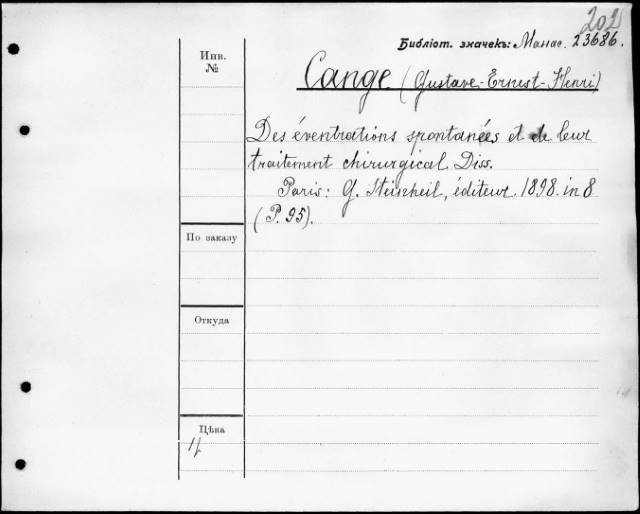 202
Библіот. значекъ: Манас. 23686.
Инв.
№
Cange (Gustave-Ernest-Henri)
Des éventrations spontanées et de leur
traitement chirurgical. Diss.
Paris: G. Steinheil, éditeur. 1898. in 8
(P. 95).
По заказу
Откуда
Цѣна